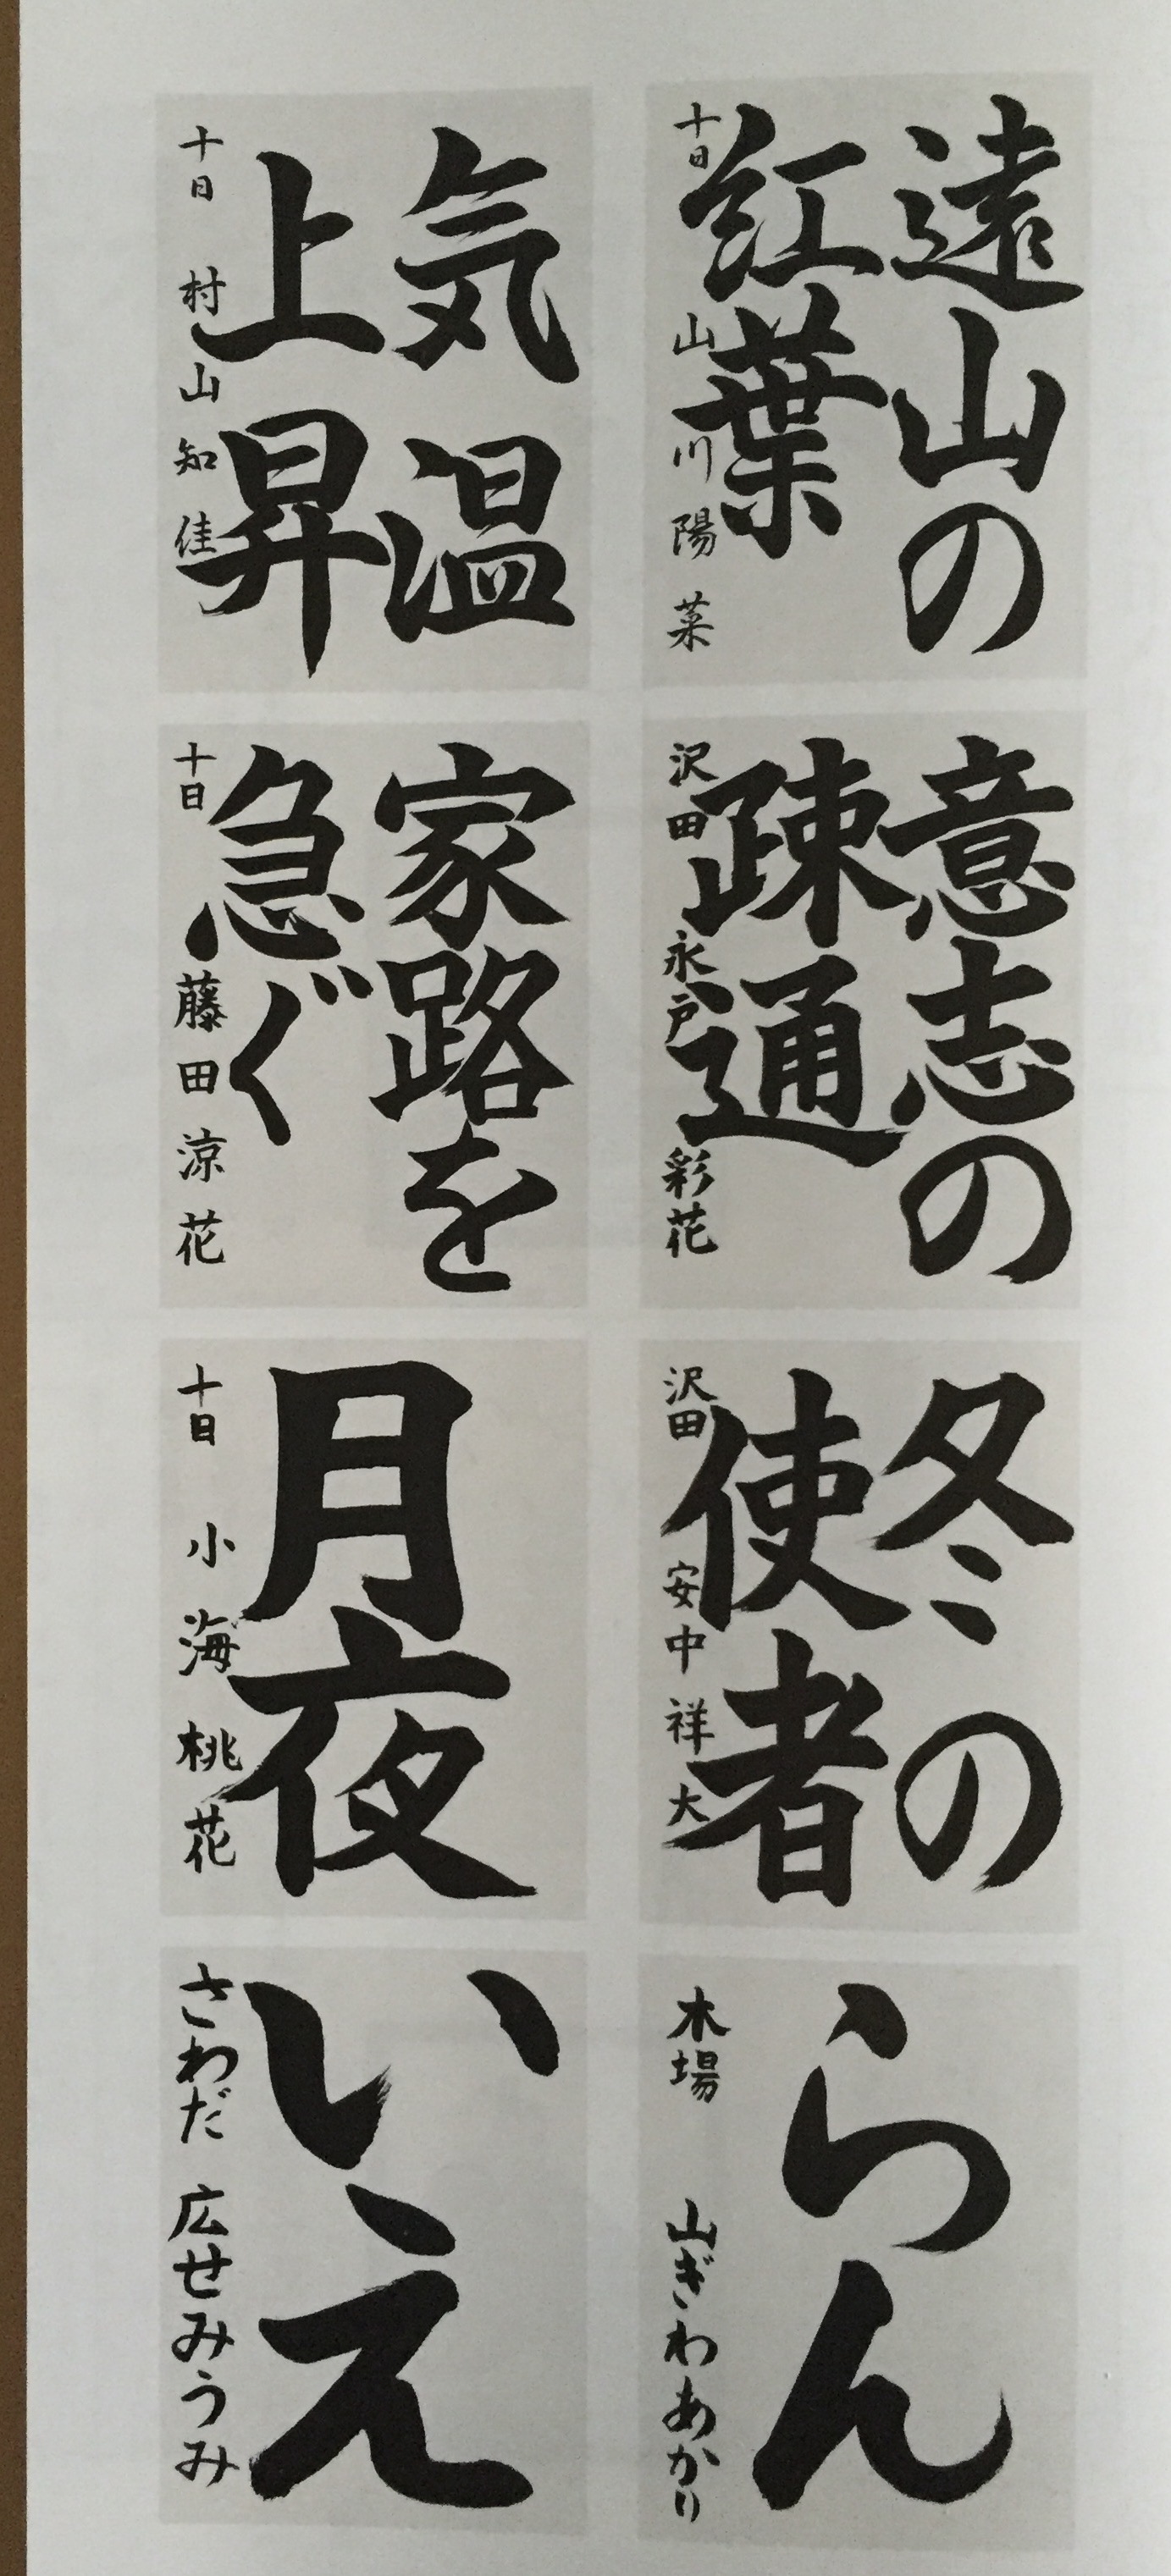 遠山の
紅葉
十日 山川陽菜
気温
上昇
十日 村山知佳
意志の
疎通
沢田 永戸彩花
家路を
急ぐ
十日 藤田涼花
冬の
使者
沢田 安中祥大
月夜
十日 小海桃花
らん
木場 山ぎわあかり
いえ
さわだ 広せみうみ